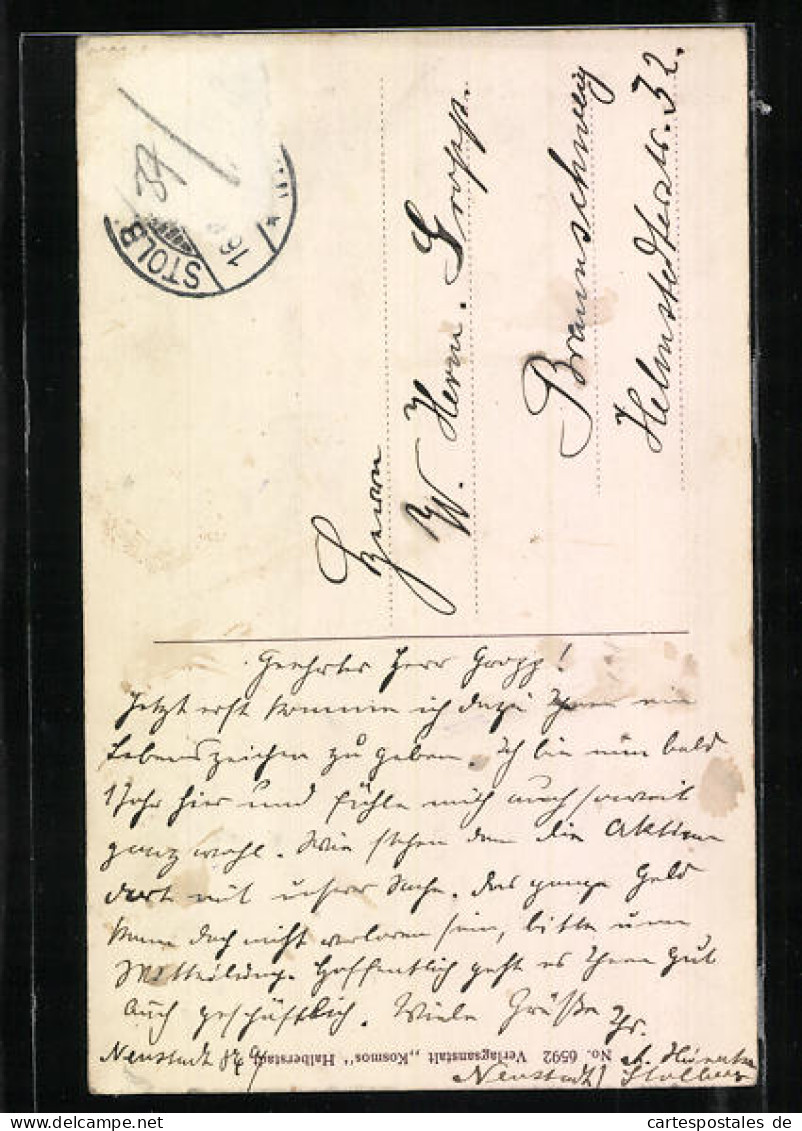 STOLB
16
37
Herrn
W. Herm. Gropp.
Braunschweig
Helmstedterstr. 32.
Geehrter Herr Gropp!
Jetzt erst komme ich dazu Ihnen ein
Lebenszeichen zu geben. Ich bin nun bald
1 Jahr hier und fühle mich auch soweit
ganz wohl. Wie stehen denn die Aktien
dort mit unserer Sache. Das ganze Geld
kann doch nicht verloren sein, bitte um
Mitteilung. Hoffentlich geht es Ihnen gut
auch geschäftlich. Viele Grüße Ihr
Neustadt
A.
Neustadt/
Stolberg
No. 6592 Verlagsanstalt „Kosmos" Halberstadt
cartespostales de